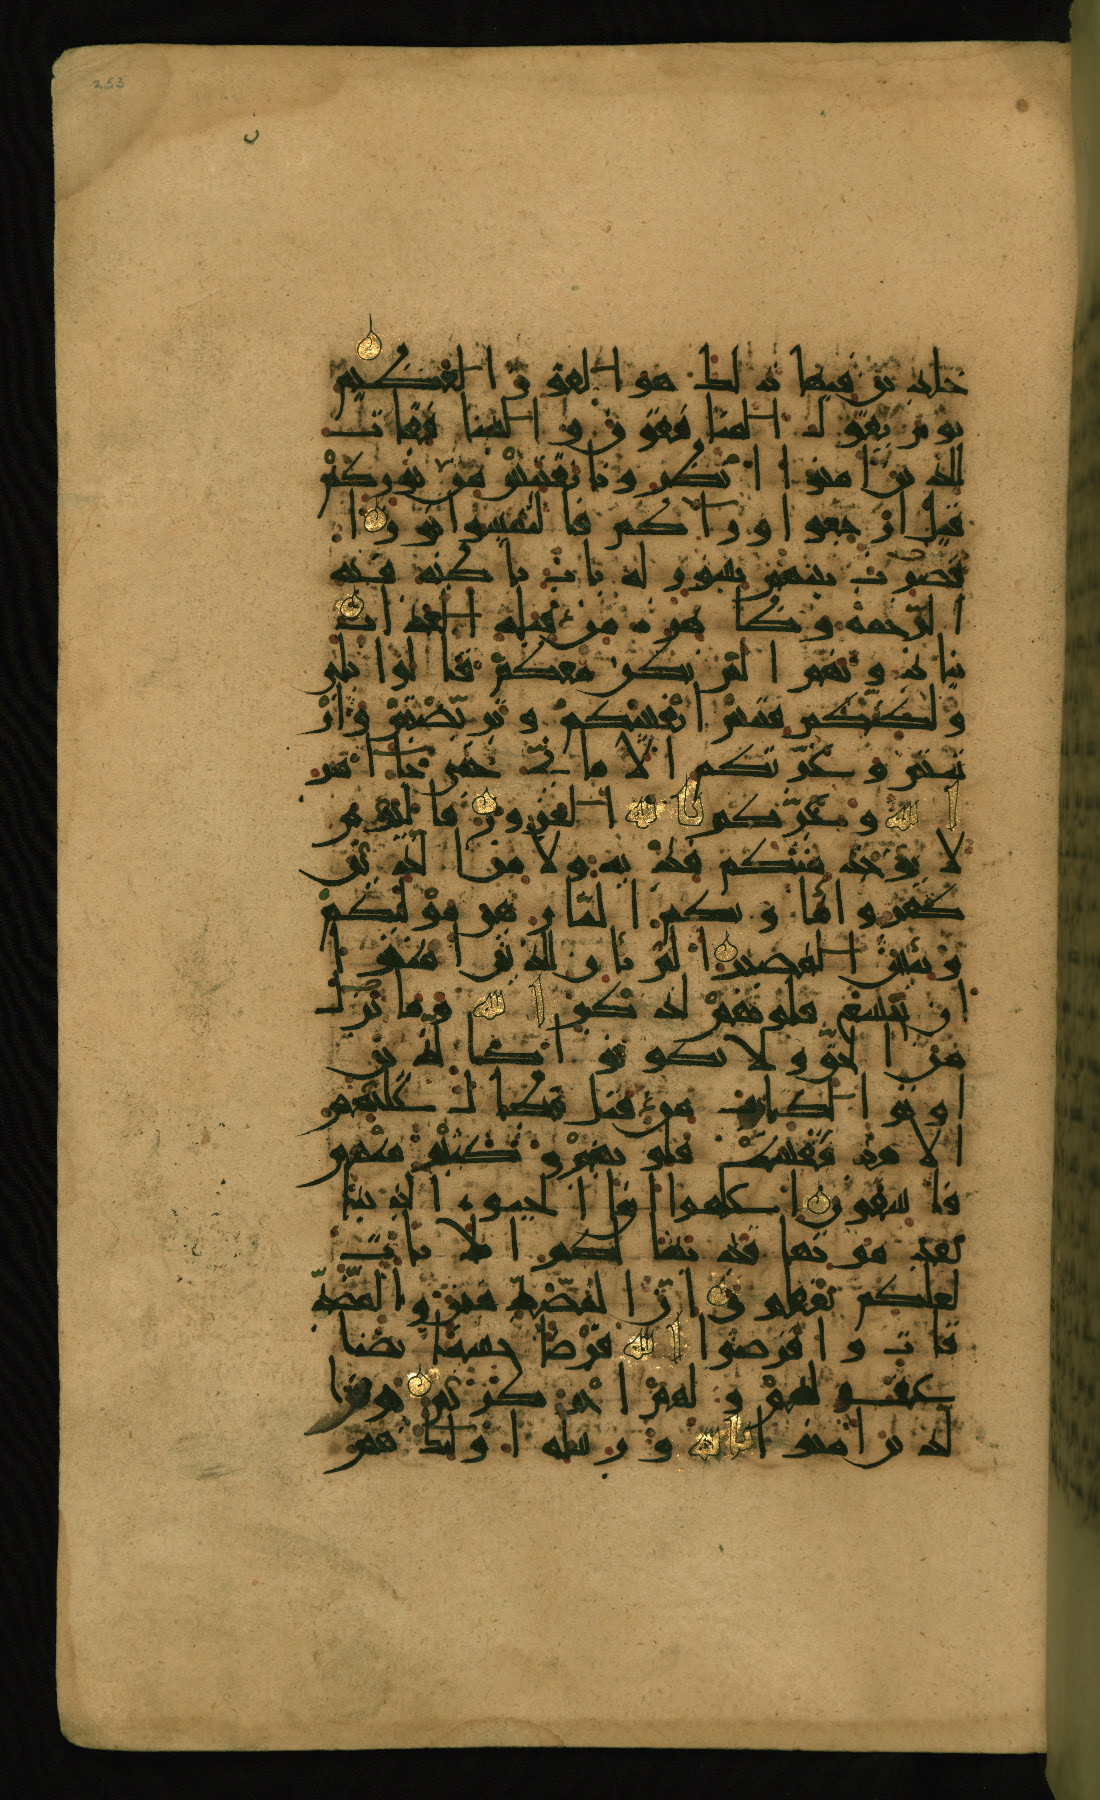 253
خلدين فيها ذلك هو الفوز العظيم
يوم يقول المنفقون والمنفقات
للذين امنوا انظرونا نقتبس من نوركم
قيل ارجعوا وراكم فالتمسوا نورا
فضرب بينهم بسور له باب باطنه فيه
الرحمة وظاهره من قبله العذاب
ينادونهم الم نكن معكم قالوا بلى
ولكنكم فتنتم انفسكم وتربصتم وار
تبتم وغرتكم الاماني حتى جا امر
الله وغركم بالله الغرور فاليوم
لا يوخذ منكم فدية ولا من الذين
كفروا ماويكم النار هي موليكم
وبئس المصير الم يان للذين امنوا
ان تخشع قلوبهم لذكر الله وما نزل
من الحق ولا يكونوا كالذين
اوتوا الكتاب من قبل فطال عليهم
الامد فقست قلوبهم وكثير منهم
فاسقون اعلموا انما الحيوة الدنيا
بعد موتها قد بينا لكم الايات
لعلكم تعقلون ان المصدقين والمصد
قات واقرضوا الله قرضا حسنا يضا
عف لهم ولهم اجر كريم وا
لذين امنوا بالله ورسله اوليك هم